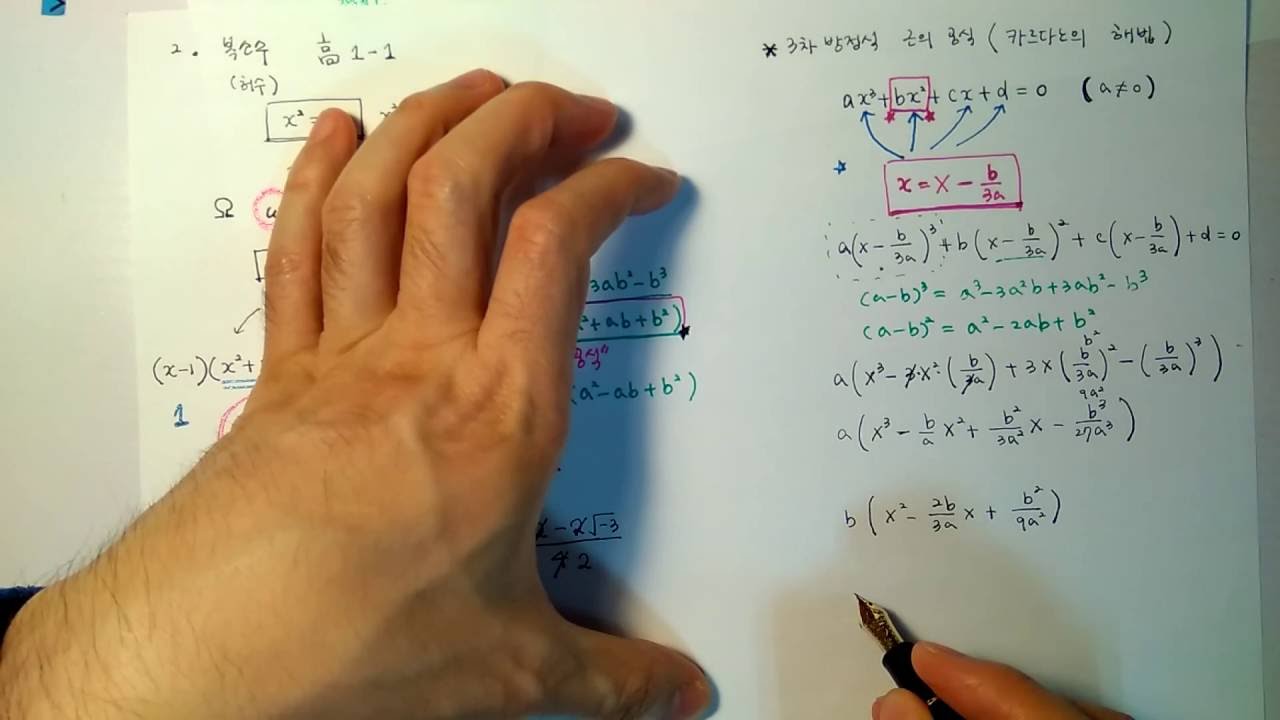 2. 복소수 高 1-1
(허수)
x² =
Ω
(x-1)(x²+
1
3ab²-b³
²+ab+b²)
공식"
(a²-ab+b²)
2-2√-3
4 2
* 3차 방정식 근의 공식 (카르다노의 해법)
ax³+bx²+cx+d=0 (a≠0)
x = X - b/3a
a(x-b/3a)³+b(x-b/3a)²+c(x-b/3a)+d=0
(a-b)³ = a³-3a²b+3ab²-b³
(a-b)² = a²-2ab+b²
a(x³-3·x²(b/3a)+3x(b/3a)²-(b/3a)³)
b²
9a²
a(x³-b/a x²+b²/3a² x-b³/27a³)
b(x²-2b/3a x+b²/9a²)